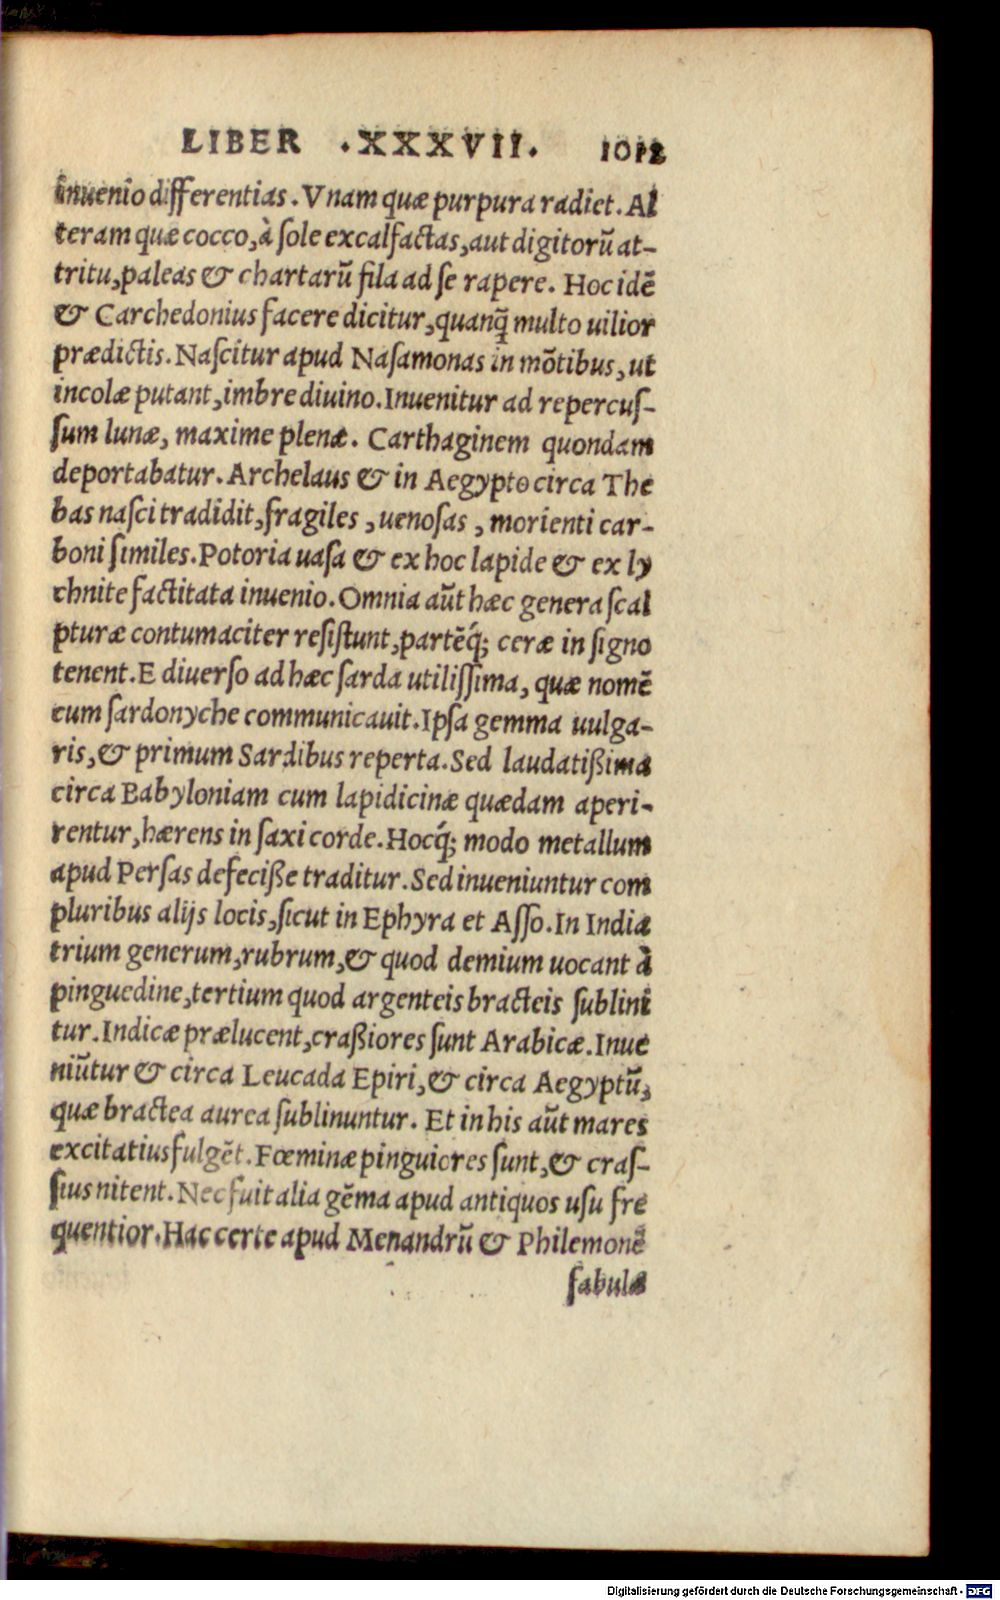 LIBER .XXXVII. 1012
inuenio differentias. Vnam quæ purpura radiet. Al
teram quæ cocco, à sole excalfactas, aut digitorũ at-
tritu, paleas & chartarũ fila ad se rapere. Hoc idẽ
& Carchedonius facere dicitur, quanq̃ multo uilior
prædictis. Nascitur apud Nasamonas in mõtibus, ut
incolæ putant, imbre diuino. Inuenitur ad repercus-
sum lunæ, maxime plenæ. Carthaginem quondam
deportabatur. Archelaus & in Aegypto circa The
bas nasci tradidit, fragiles, uenosas, morienti car-
boni similes. Potoria uasa & ex hoc lapide & ex ly
chnite factitata inuenio. Omnia aũt hæc genera scal
pturæ contumaciter resistunt, partẽq́; ceræ in signo
tenent. E diuerso ad hæc sarda utilissima, quæ nomẽ
cum sardonyche communicauit. Ipsa gemma uulga-
ris, & primum Sardibus reperta. Sed laudatißima
circa Babyloniam cum lapidicinæ quædam aperi-
rentur, hærens in saxi corde. Hocq́; modo metallum
apud Persas defeciße traditur. Sed inueniuntur com
pluribus alijs locis, sicut in Ephyra et Asso. In India
trium generum, rubrum, & quod demium uocant à
pinguedine, tertium quod argenteis bracteis sublini
tur. Indicæ prælucent, craßiores sunt Arabicæ. Inue
niũtur & circa Leucada Epiri, & circa Aegyptũ,
quæ bractea aurea sublinuntur. Et in his aũt mares
excitatius fulgẽt. Fœminæ pinguiores sunt, & cras-
sius nitent. Nec fuit alia gẽma apud antiquos usu fre
quentior. Hac certe apud Menandrũ & Philemonẽ
fabulæ
Digitalisierung gefördert durch die Deutsche Forschungsgemeinschaft - DFG